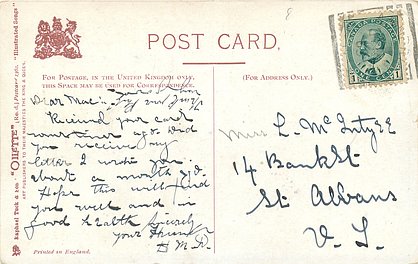 POST CARD.
FOR POSTAGE, IN THE UNITED KINGDOM ONLY,
THIS SPACE MAY BE USED FOR CORRESPONDENCE.
(FOR ADDRESS ONLY.)
Dear Mac
Received your card
sometime ago. Did
you receive my
letter I wrote you
about a month ago.
Hope this will find
you well and in
good health Sincerly
your Friend
D M R.
Miss L. McIntyre
14 Bank St
St Albans
V. T.
Printed in England.
Raphael Tuck & Sons' "OILETTE"
ART PUBLISHERS TO THEIR MAJESTIES THE KING & QUEEN.
"Illustrated Songs"
1 1